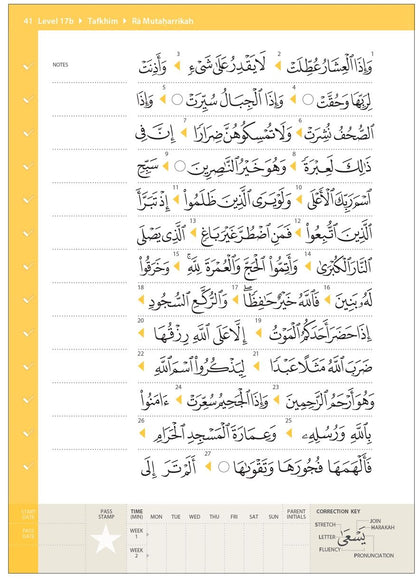 41 Level 17b › Tafkhim › Rā Mutaḥarrikah
NOTES
1 وَإِذَا ٱلْعِشَارُ عُطِّلَتْ 2 لَا يَقْدِرُ عَلَىٰ شَىْءٍ 3 وَأَذِنَتْ
لِرَبِّهَا وَحُقَّتْ ○ 4 وَإِذَا ٱلْجِبَالُ سُيِّرَتْ ○ 5 وَإِذَا
ٱلصُّحُفُ نُشِرَتْ 6 وَلَا تُمْسِكُوهُنَّ ضِرَارًا 7 إِنَّ فِى
ذَٰلِكَ لَعِبْرَةً 8 وَهُوَ خَيْرُ ٱلنَّـٰصِرِينَ ○ 9 سَبِّحِ
ٱسْمَ رَبِّكَ ٱلْأَعْلَى 10 وَلَوْ يَرَى ٱلَّذِينَ ظَلَمُوٓا۟ 11 إِذْ تَبَرَّأَ
ٱلَّذِينَ ٱتُّبِعُوا۟ 12 فَمَنِ ٱضْطُرَّ غَيْرَ بَاغٍ 13 ٱلَّذِى يَصْلَى
ٱلنَّارَ ٱلْكُبْرَىٰ 14 وَأَتِمُّوا۟ ٱلْحَجَّ وَٱلْعُمْرَةَ لِلَّهِ 15 وَخَرَقُوا۟
لَهُۥ بَنِينَ 16 فَٱللَّهُ خَيْرٌ حَـٰفِظًا 17 وَٱلرُّكَّعِ ٱلسُّجُودِ 18
إِذَا حَضَرَ أَحَدَكُمُ ٱلْمَوْتُ 19 إِلَّا عَلَى ٱللَّهِ رِزْقُهَا 20
ضَرَبَ ٱللَّهُ مَثَلًا عَبْدًا 21 لِيَذْكُرُوا۟ ٱسْمَ ٱللَّهِ 22
وَهُوَ أَرْحَمُ ٱلرَّٰحِمِينَ 23 وَإِذَا ٱلْجَحِيمُ سُعِّرَتْ 24 ءَامَنُوا۟
بِٱللَّهِ وَرُسُلِهِۦ 25 وَعِمَارَةَ ٱلْمَسْجِدِ ٱلْحَرَامِ 26
فَأَلْهَمَهَا فُجُورَهَا وَتَقْوَىٰهَا ○ 27 أَلَمْ تَرَ إِلَى
START DATE PASS STAMP TIME (MIN) MON TUE WED THU FRI SAT SUN PARENT INITIALS CORRECTION KEY
PASS DATE WEEK 1
WEEK 2
STRETCH JOIN HARAKAH
LETTER يَسْعَىٰ
FLUENCY PRONUNCIATION